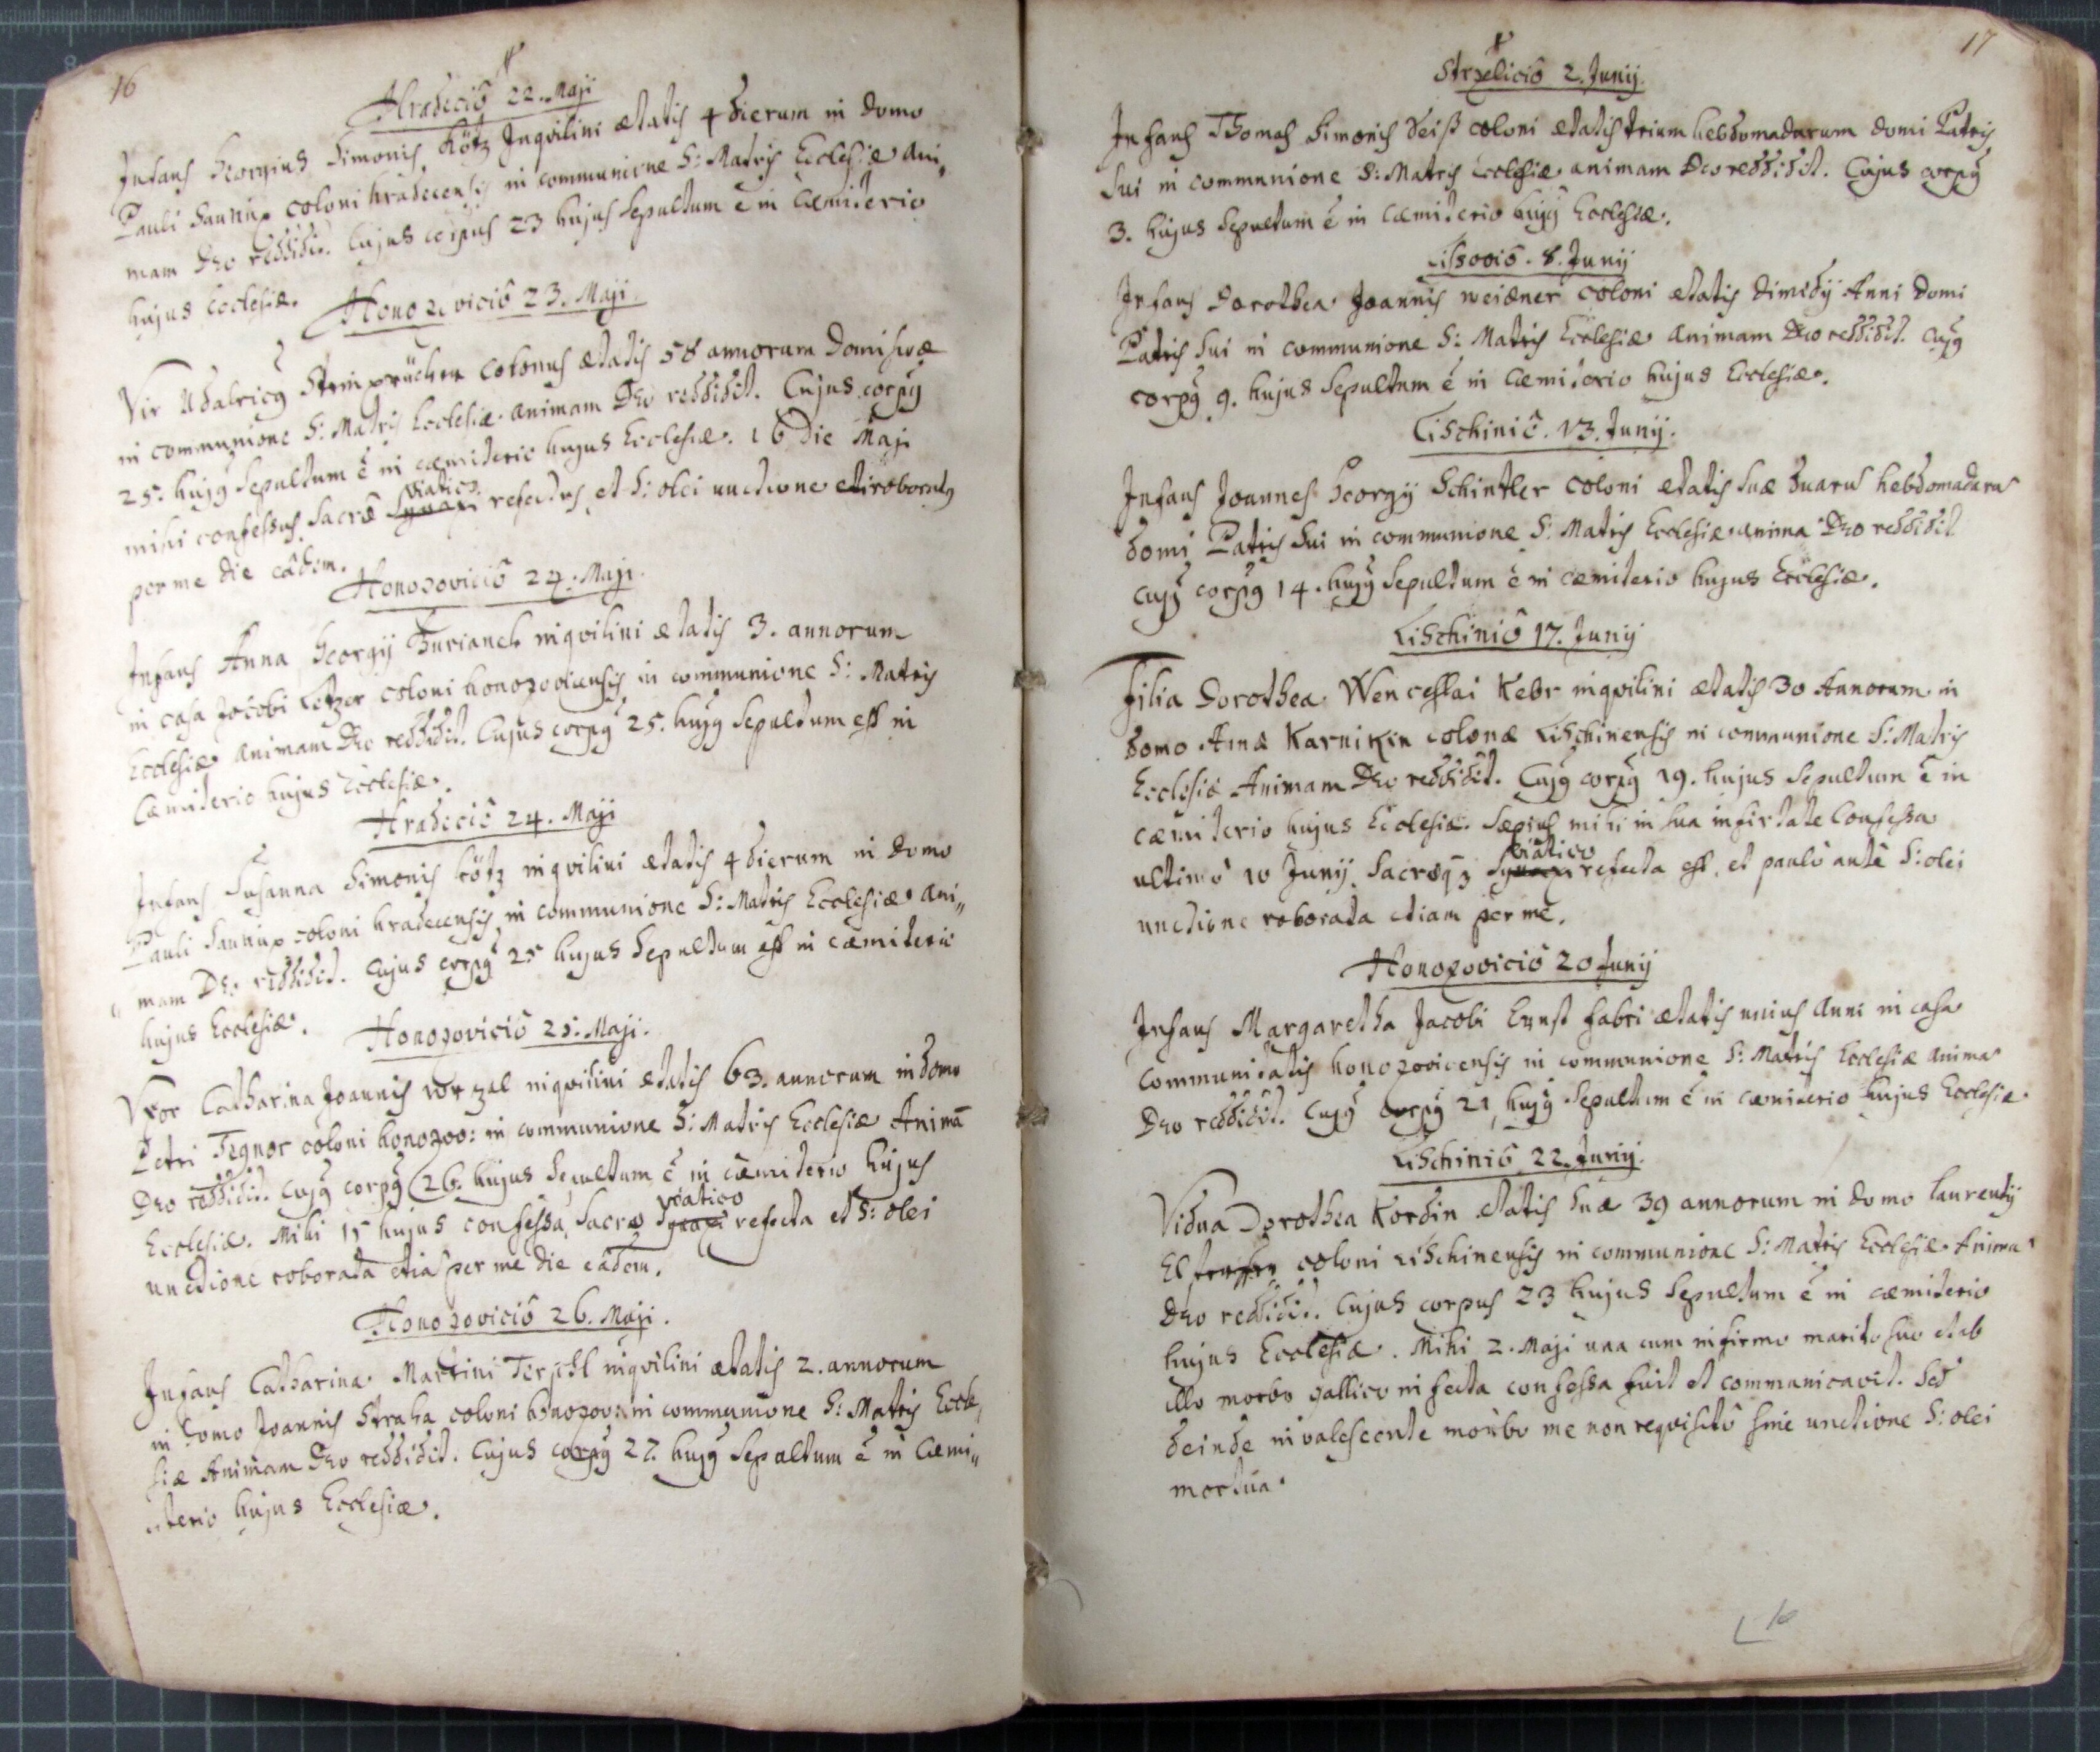 16
Hradeciô 22. Maji
Infans Georgius Simonis Kötz Inqvilini ætatis 4 dierum in domo
Pauli coloni hradecensis in communione S: Matris Ecclesiæ ani„
mam Deo reddidit. Cujus corpus 23 hujus sepultum ê in Cæmiterio
hujus Ecclesiæ.
Honozoviciô 23. Maji.
Vir Udalricg colonus ætatis 58 annorum domi suæ
in communione S: Matris Ecclesiæ animam Deo reddidit. Cujus corpg
25. hujg sepultum ê in cæmiterio hujus Ecclesiæ. 16 die Maji
viatico
mihi confessus sacrô Synaxi refectus et S: olei unctione etiã roboratg
per me die eâdem.
Honozoviciô 24. Maji.
Infans Anna Georgij Burianek inqvilini ætatis 3. annorum
in casa Jacobi Letzer coloni honozoviensis in communione S: Matris
Ecclesiæ animam Deo reddidit. Cujus corpg 25. hujg sepultum est in
Cæmiterio hujus Ecclesiæ.
Hradeciô 24. Maji
Infans Susanna Simonis Kötz inqvilini ætatis 4 dierum in domo
Pauli coloni hradecensis in communione S: Matris Ecclesiæ ani„
„ mam Deo reddidit. Cujus corpg 25 hujus sepultum est in cæmiterio
hujus Ecclesiæ.
Honozoviciô 25. Maji.
Uxor Catharina Joannis inqvilini ætatis 63. annorum in domo
Petri Tegner coloni honozov: in communione S: Matris Ecclesiæ Animã
Deo reddidit. Cujg corpg 26. hujus sepultum ê in cæmiterio hujus
viatico
Ecclesiæ. Mihi 15 hujus confessa, sacro Synaxi refecta et S: olei
unctione roborata etiã per me die eâdem.
Honozoviciô 26. Maji.
Infans Catharina Martini Terschl inqvilini ætatis 2. annorum
in domo Joannis Straha coloni honozov: in communione S: Matris Eccle„
siæ Animam Deo reddidit. Cujus corpg 27. hujg sepultum ê in Cæmi„
„terio hujus Ecclesiæ.
17
Strzeliciô 2. Junij.
Infans Thomas Simonis Seiß coloni ætatis trium hebdomadarum domi Patris
sui in communione S: Matris Ecclesiæ animam Deo reddidit. Cujus corpg
3. hujus sepultum ê in Cæmiterio hujg Ecclesiæ.
Lissoviô. 8. Junij
Infans Dorothea Joannis weisner coloni ætatis dimidij Anni domi
Patris sui in communione S: Matris Ecclesiæ animam Deo reddidit. Cujg
corpg 9. hujus sepultum ê in Cæmiterio hujus Ecclesiæ.
Lischiniô. 13. Junij.
Infans Joannes Georgij Schintler coloni ætatis suæ duarũ hebdomadarũ
domi Patris sui in communione S: Matris Ecclesiæ animã Deo reddidit
Cujg corpg 14. hujg sepultum ê in cæmiterio hujus Ecclesiæ.
Lischiniô 17. Junij
Filia Dorothea Wenceslai Kebr inqvilini ætatis 30 Annorum in
domo Annæ Karnikin colonæ Lischinensis in communione S: Matris
Ecclesiæ Animam Deo reddidit. Cujg corpg 19. hujus sepultum ê in
cæmiterio hujus Ecclesiæ. Sæpius mihi in sua infirtate Confessa
viatico
ultimô 10 Junij. Sacroqz Synaxi refecta est, et paulô antè S: olei
unctione roborata etiam per me.
Honozoviciô 20 Junij
Infans Margaretha Jacobi Ernst fabri ætatis unius Anni in casa
Communitatis honozovicensis in communione S: Matris Ecclesiæ animã
Deo reddidit. Cujg corpg 21 hujg sepultum ê in cæmiterio hujus Ecclesiæ.
Lischiniô 22. Junij.
Vidua Dorothea Kordin ætatis suæ 39 annorum in domo laurentij
coloni Lischinensis in communione S: Matris Ecclesiæ Animã
Deo reddidit. Cujus corpus 23 hujus sepultum ê in cæmiterio
hujus Ecclesiæ. Mihi 2. Maji una cum infirmo marito suo et ab
illo morbo gallico infecta confessa fuit et communicavit. Sed
deinde invalescente morbo me non reqvisitô sine unctione S: olei
mortua.